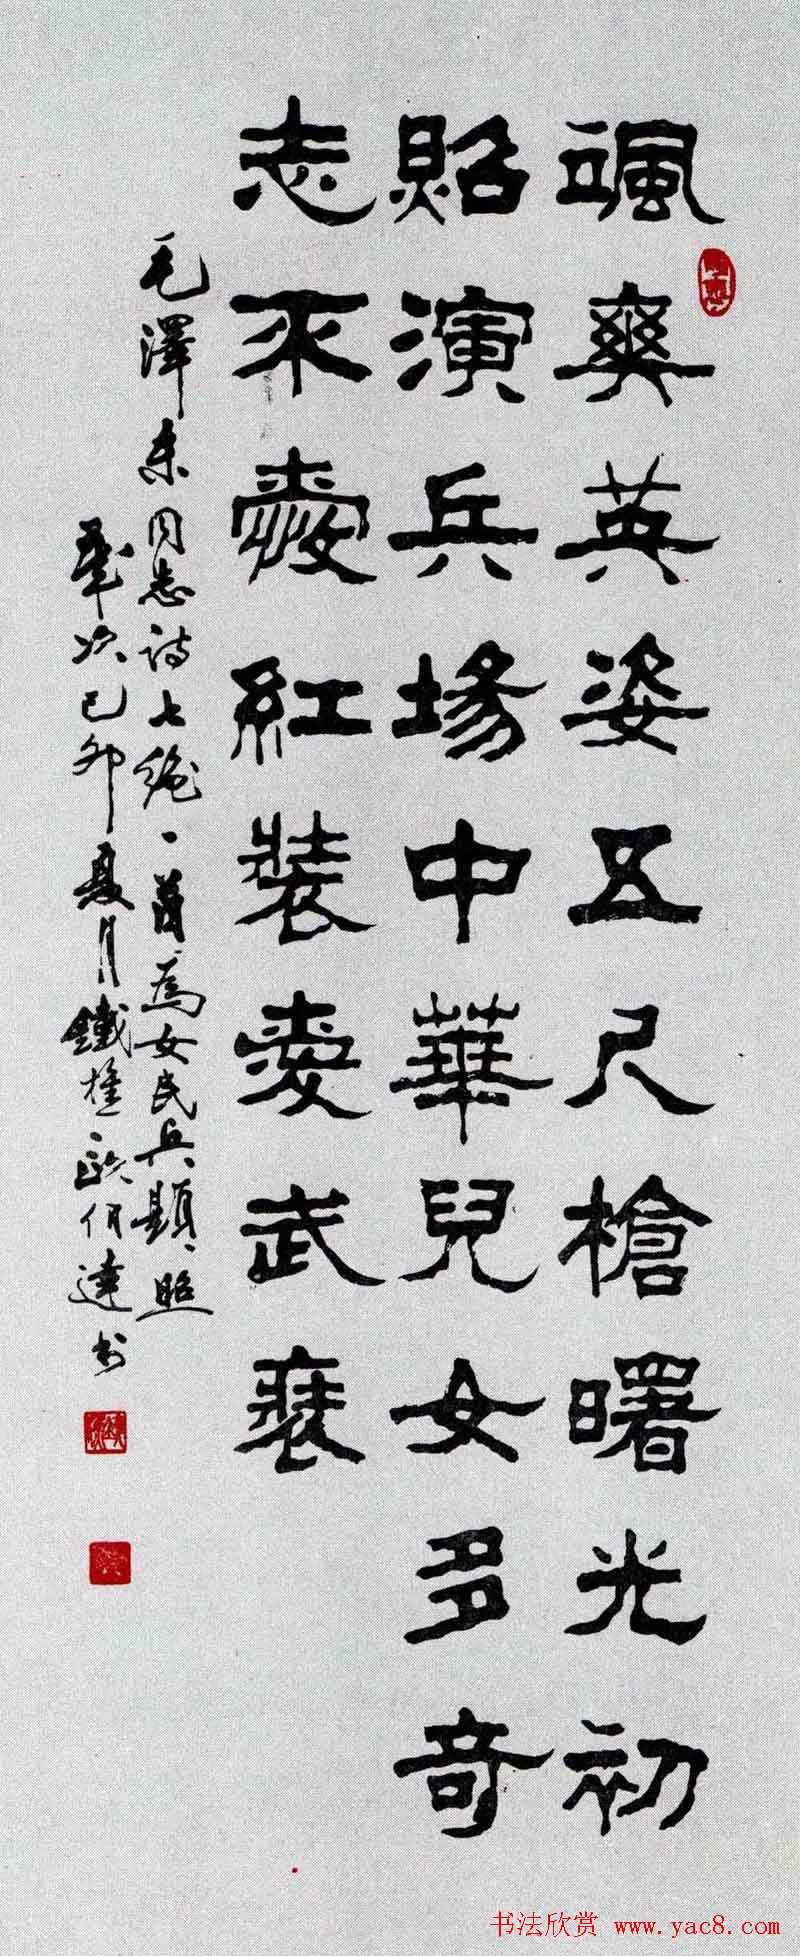 颯爽英姿五尺槍曙光初
照演兵場中華兒女多奇
志不愛紅裝愛武裝
毛澤东同志詩七絕一首為女民兵題照
歲次己卯夏月鐵達书
书法欣赏 www.yac8.com